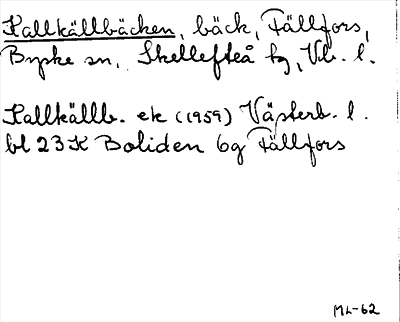 Kallkällbäcken, bäck, Fällfors,
Byske sn, Skellefteå tg, Vb. l.
Kallkällb. ek (1959) Västerb. l.
bl 23K Boliden 6g Fällfors
ML-62